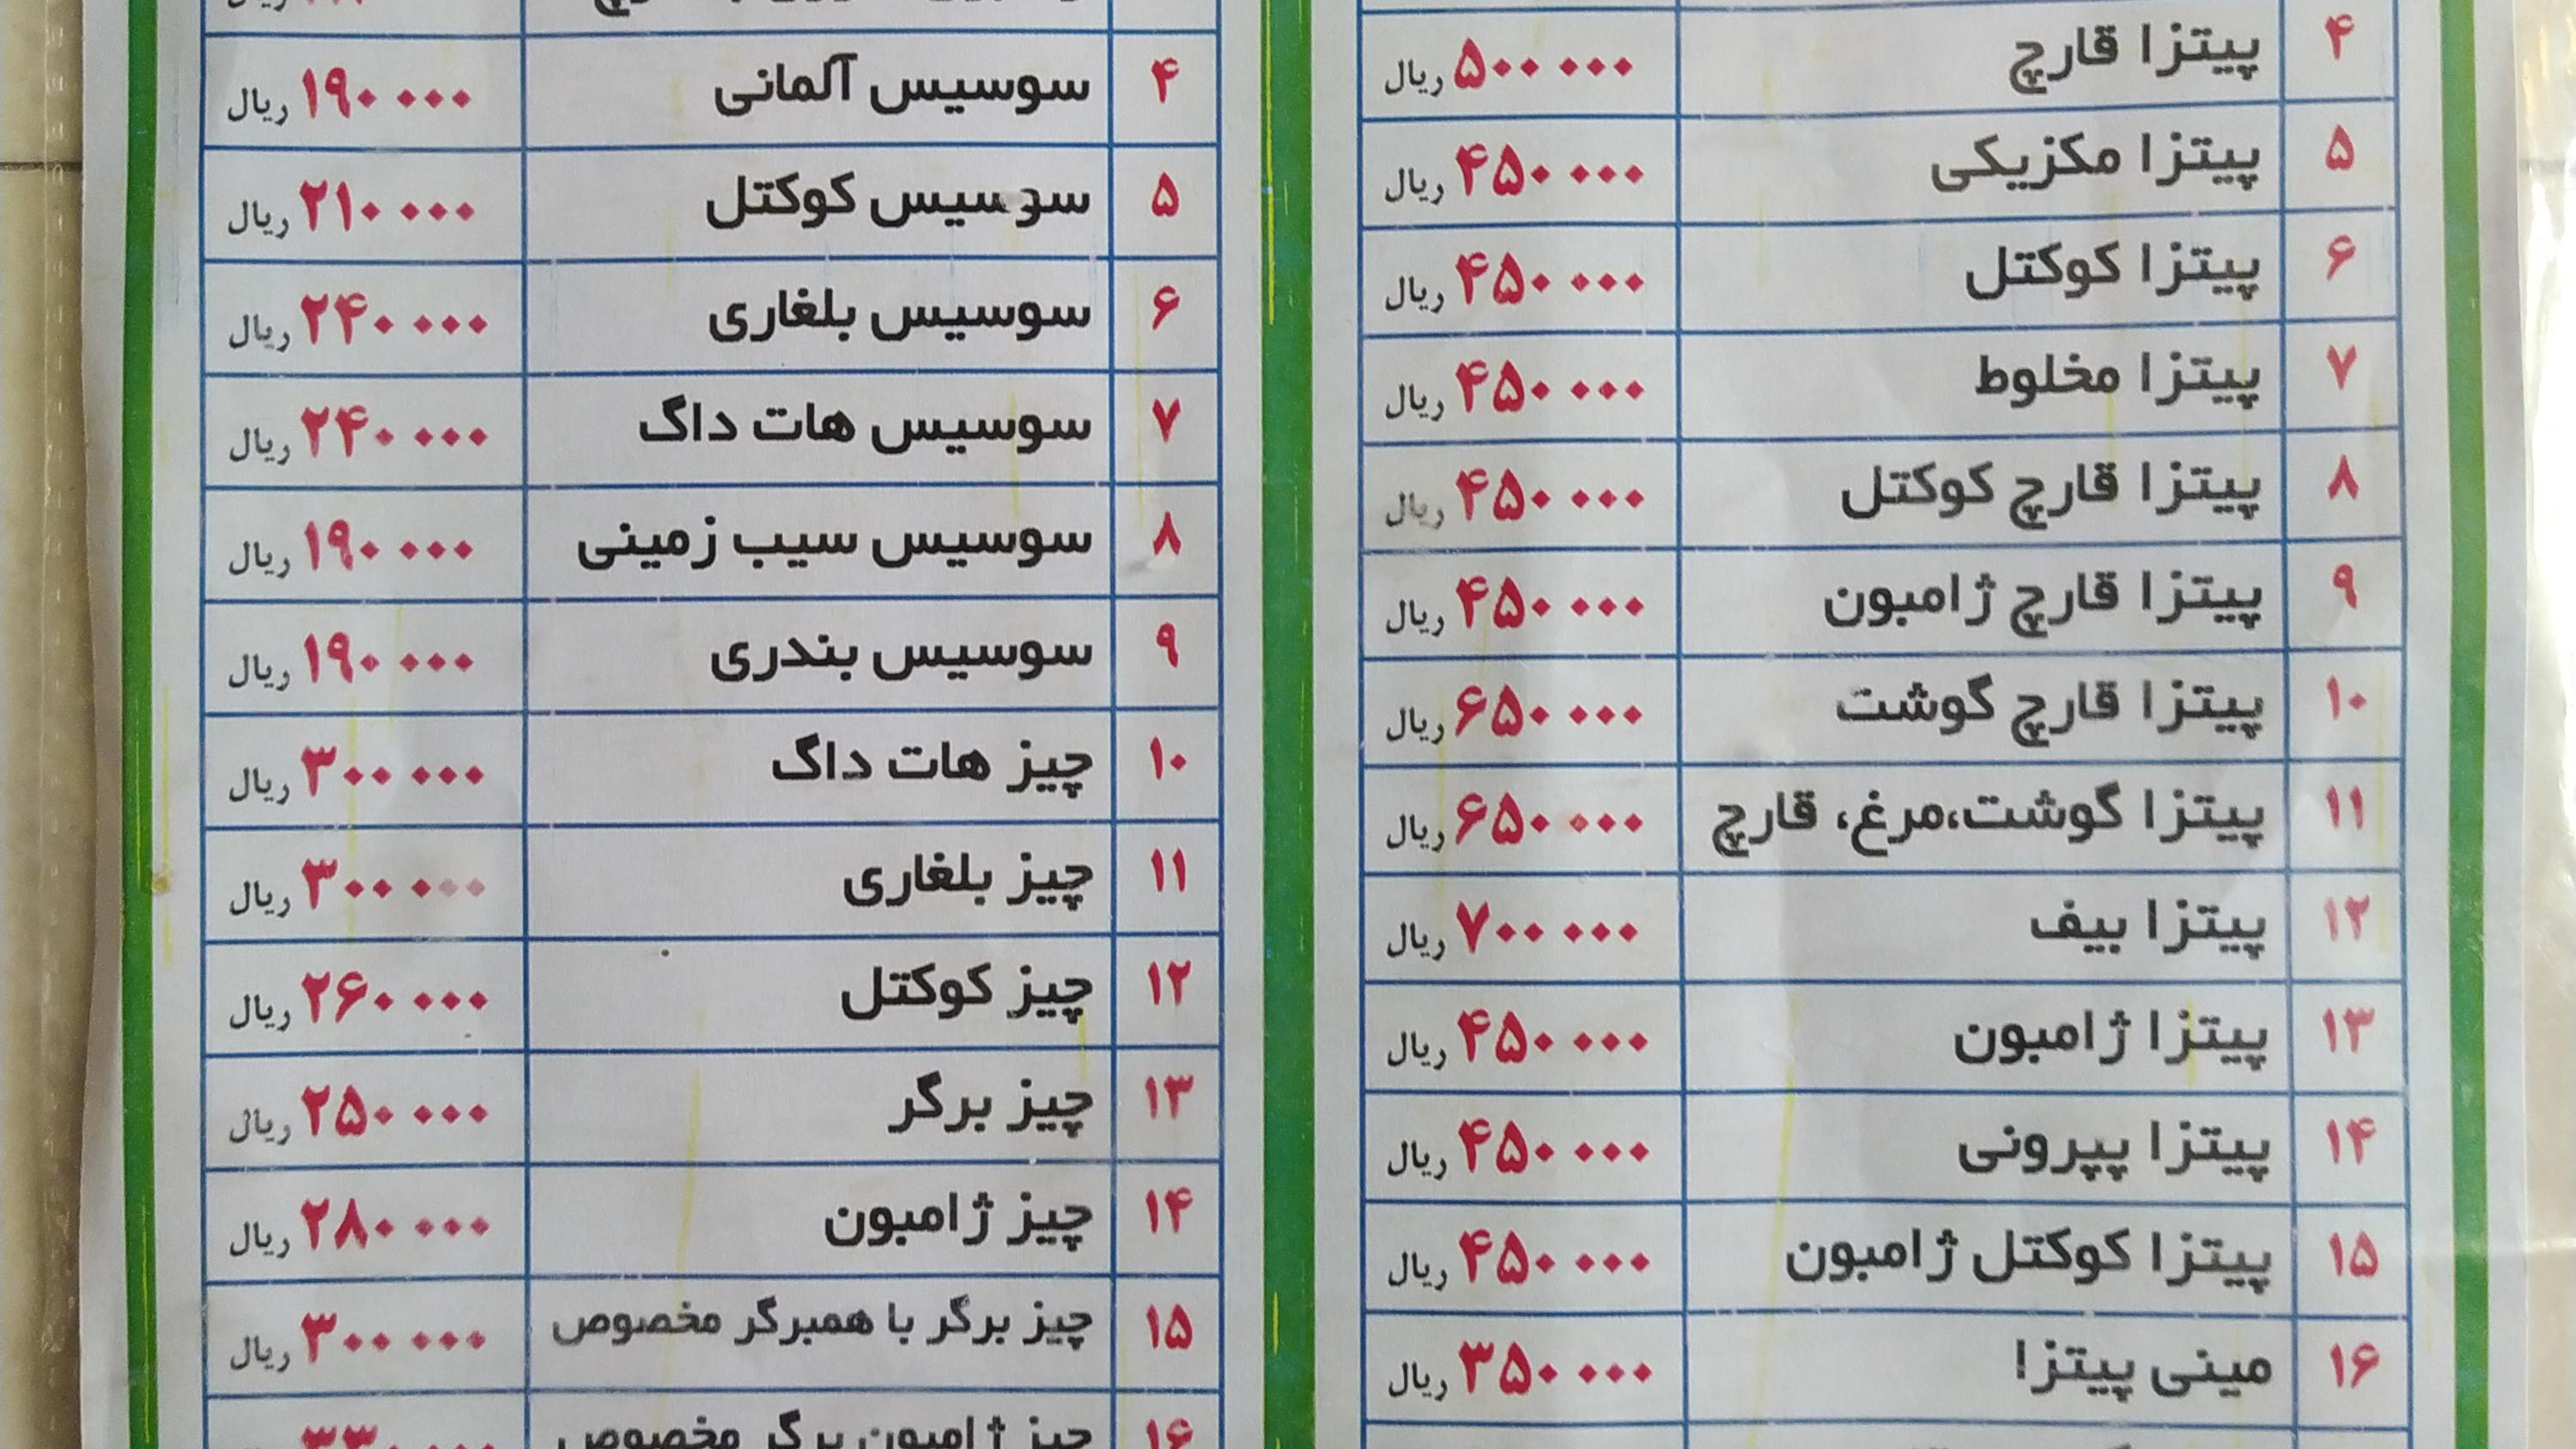 ۴ پیتزا قارچ ۵۰۰۰۰۰ ریال
۵ پیتزا مکزیکی ۴۵۰۰۰۰ ریال
۶ پیتزا کوکتل ۴۵۰۰۰۰ ریال
۷ پیتزا مخلوط ۴۵۰۰۰۰ ریال
۸ پیتزا قارچ کوکتل ۴۵۰۰۰۰ ریال
۹ پیتزا قارچ ژامبون ۴۵۰۰۰۰ ریال
۱۰ پیتزا قارچ گوشت ۶۵۰۰۰۰ ریال
۱۱ پیتزا گوشت،مرغ، قارچ ۶۵۰۰۰۰ ریال
۱۲ پیتزا بیف ۷۰۰۰۰۰ ریال
۱۳ پیتزا ژامبون ۴۵۰۰۰۰ ریال
۱۴ پیتزا پپرونی ۴۵۰۰۰۰ ریال
۱۵ پیتزا کوکتل ژامبون ۴۵۰۰۰۰ ریال
۱۶ مینی پیتزا! ۳۵۰۰۰۰ ریال
۴ سوسیس آلمانی ۱۹۰۰۰۰ ریال
۵ سوسیس کوکتل ۲۱۰۰۰۰ ریال
۶ سوسیس بلغاری ۲۴۰۰۰۰ ریال
۷ سوسیس هات داگ ۲۴۰۰۰۰ ریال
۸ سوسیس سیب زمینی ۱۹۰۰۰۰ ریال
۹ سوسیس بندری ۱۹۰۰۰۰ ریال
۱۰ چیز هات داگ ۳۰۰۰۰۰ ریال
۱۱ چیز بلغاری ۳۰۰۰۰۰ ریال
۱۲ چیز کوکتل ۲۶۰۰۰۰ ریال
۱۳ چیز برگر ۲۵۰۰۰۰ ریال
۱۴ چیز ژامبون ۲۸۰۰۰۰ ریال
۱۵ چیز برگر با همبرگر مخصوص ۳۰۰۰۰۰ ریال
۱۶ چیز ژامبون برگر مخصوص ۳۳۰۰۰۰